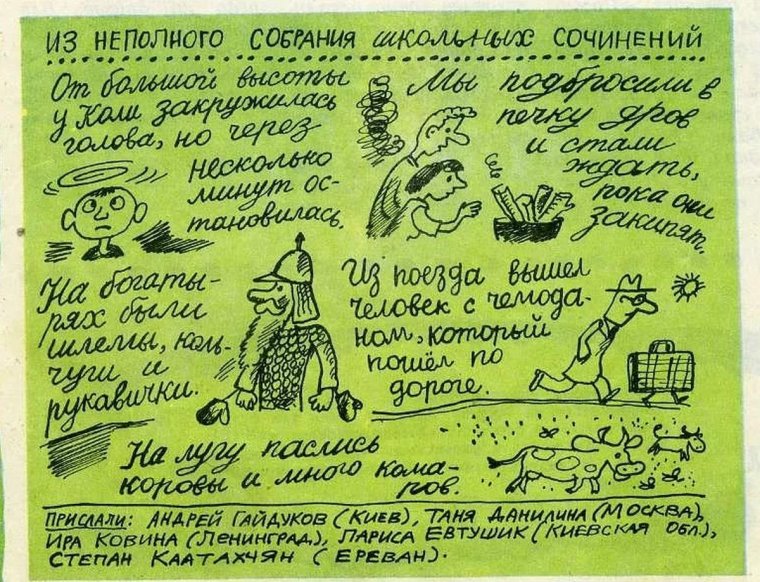 ИЗ НЕПОЛНОГО СОБРАНИЯ ШКОЛЬНЫХ СОЧИНЕНИЙ
От большой высоты
у Коли закружилась
голова, но через
несколько
минут ос-
тановилась.
Мы подбросили в
печку дров
и стали
ждать,
пока они
закипят.
На богаты-
рях были
шлемы, коль-
чуги и
рукавички.
Из поезда вышел
человек с чемода-
ном, который
пошёл по
дороге.
На лугу паслись
коровы и много кома-
ров.
ПРИСЛАЛИ: АНДРЕЙ ГАЙДУКОВ (КИЕВ), ТАНЯ ДАНИЛИНА (МОСКВА),
ИРА КОВИНА (ЛЕНИНГРАД), ЛАРИСА ЕВТУШИК (КИЕВСКАЯ ОБЛ.),
СТЕПАН КААТАХЧЯН (ЕРЕВАН).